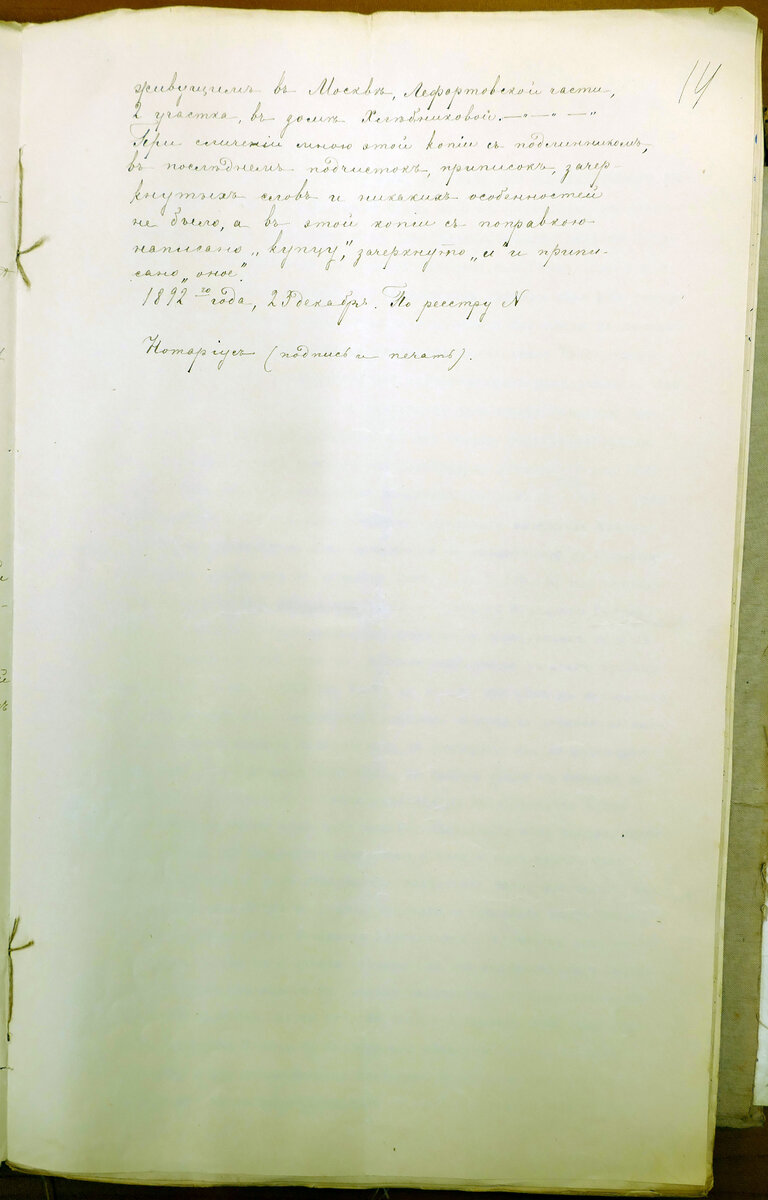 14
живущимъ въ Москвѣ, Лефортовской части,
2 участка, въ домѣ Хлѣбниковой. — „ — „ — „
При сличеніи мною этой копіи съ подлинникомъ,
въ послѣднемъ подчистокъ, приписокъ, зачер-
кнутыхъ словъ и никакихъ особенностей
не было, а въ этой копіи съ поправкою
написано „купцу“, зачеркнуто „и“ и припи-
сано „оное“.
1892 го года, декабря. По реестру N
Нотаріусъ (подпись и печать).